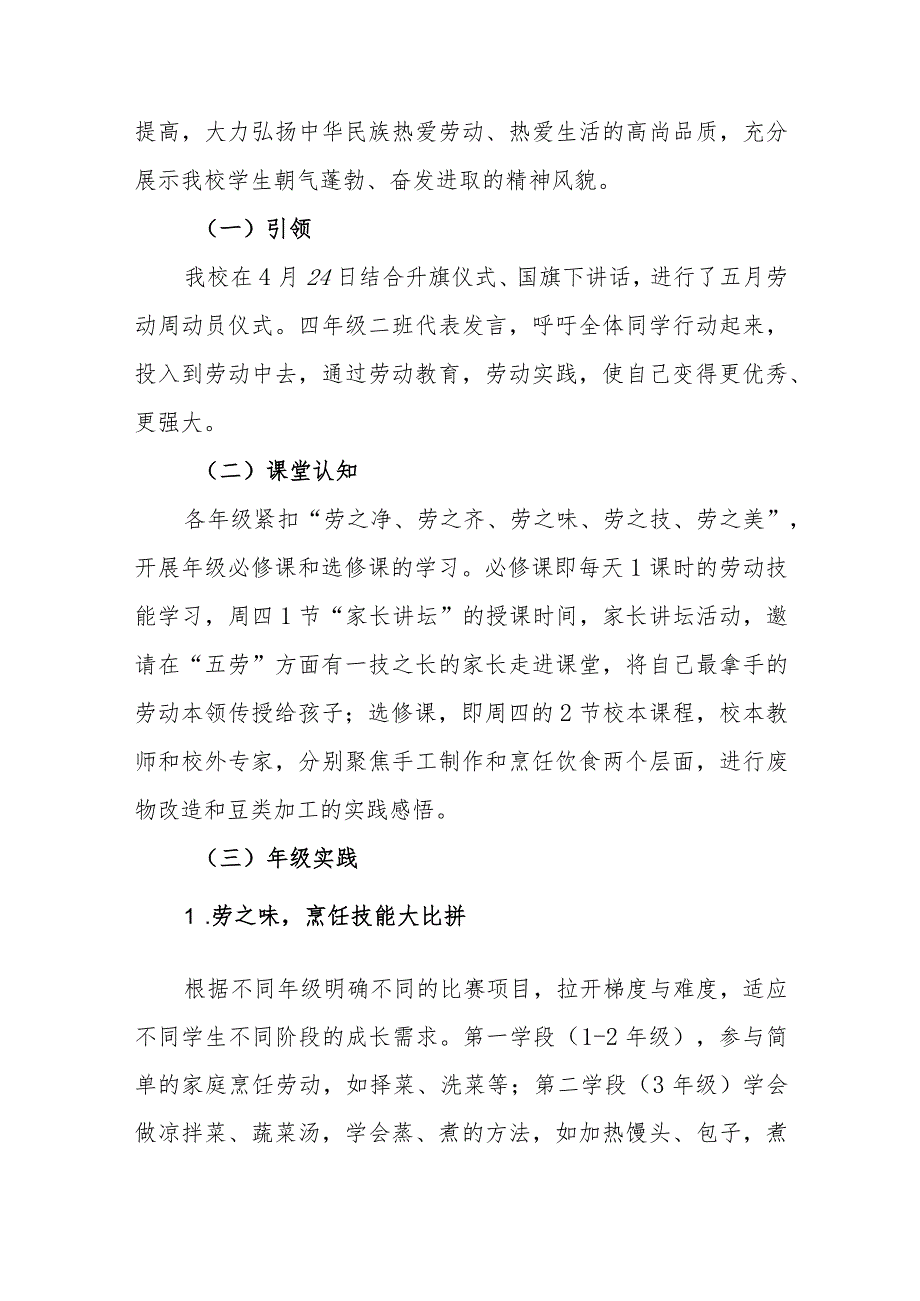 提高，大力弘扬中华民族热爱劳动、热爱生活的高尚品质，充分
展示我校学生朝气蓬勃、奋发进取的精神风貌。
（一）引领
我校在4月24日结合升旗仪式、国旗下讲话，进行了五月劳
动周动员仪式。四年级二班代表发言，呼吁全体同学行动起来，
投入到劳动中去，通过劳动教育，劳动实践，使自己变得更优秀、
更强大。
（二）课堂认知
各年级紧扣“劳之净、劳之齐、劳之味、劳之技、劳之美”，
开展年级必修课和选修课的学习。必修课即每天1课时的劳动技
能学习，周四1节“家长讲坛”的授课时间，家长讲坛活动，邀
请在“五劳”方面有一技之长的家长走进课堂，将自己最拿手的
劳动本领传授给孩子；选修课，即周四的2节校本课程，校本教
师和校外专家，分别聚焦手工制作和烹饪饮食两个层面，进行废
物改造和豆类加工的实践感悟。
（三）年级实践
1 .劳之味，烹饪技能大比拼
根据不同年级明确不同的比赛项目，拉开梯度与难度，适应
不同学生不同阶段的成长需求。第一学段（1-2年级），参与简
单的家庭烹饪劳动，如择菜、洗菜等；第二学段（3年级）学会
做凉拌菜、蔬菜汤，学会蒸、煮的方法，如加热馒头、包子，煮